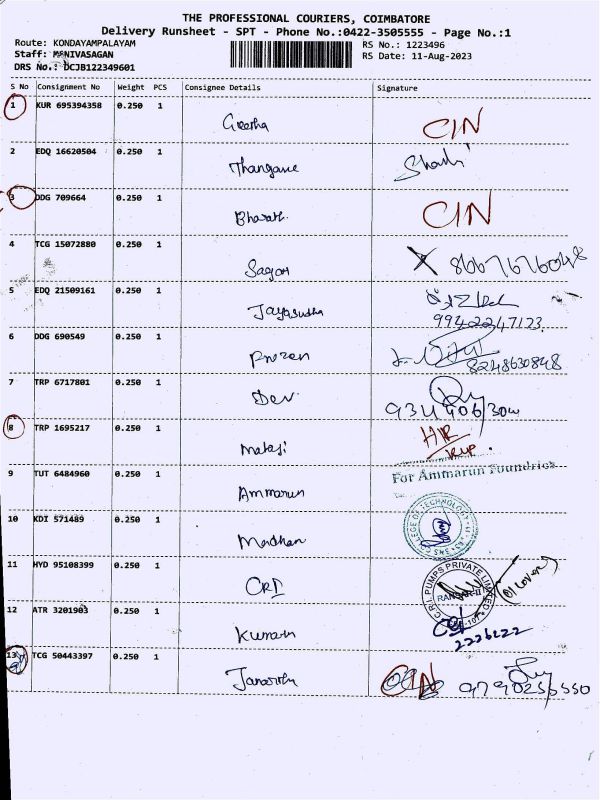 THE PROFESSIONAL COURIERS, COIMBATORE
Delivery Runsheet - SPT - Phone No.:0422-3505555 - Page No.:1
Route: KONDAYAMPALAYAM
RS No.: 1223496
Staff: MANIVASAGAN
RS Date: 11-Aug-2023
DRS No.: DCJB122349601
S No Consignment No Weight PCS Consignee Details Signature
1 KUR 695394358 0.250 1 Geetha CIN
2 EDQ 16620504 0.250 1 Thangam Shashi
3 DDG 709664 0.250 1 Bharath CIN
4 TCG 15072880 0.250 1 Sagar
5 EDQ 21509161 0.250 1 Jayasudha
9942247123
6 DDG 690549 0.250 1
8248630848
7 TRP 6717801 0.250 1 Dev
8 TRP 1695217 0.250 1 Mataji
9 TUT 6484960 0.250 1 Ammarun For Ammarun Foundries
10 KDI 571489 0.250 1 Madhan COLLEGE OF TECHNOLOGY
11 HYD 95108399 0.250 1 CRI C.R.I. PUMPS PRIVATE LIMITED
12 ATR 3201903 0.250 1 Kumaran
2226222
13 TCG 50443397 0.250 1 CIN 9790256550